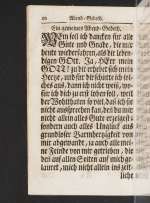 90 Abend-Gebeth.
Ein gemeines Abend-Gebeth.
Wem soll ich dancken für alle
Güte und Gnade, die mir
heute wiederfahren, als dir lieben-
digen GOtt. Ja, HErr mein
GOTT! zu dir erhebet sich mein
Hertze, und für dir schütte ich sel-
ches aus, dann ich nicht weiß, wo-
für ich dich zu erst loben soll, weil
der Wohlthaten so viel, daß ich sie
nicht aussprechen kan, der du mir
nicht allein alles Gute erzeiget
sondern auch alles Unglück aus
grundloser Barmhertzigkeit von
mir abgewandt, ja auch alle mei-
ne Feinde von mir getrieben, die
bei auf allen Seiten auf mich ge-
lauret, mich nicht allein ins zeit-
liche